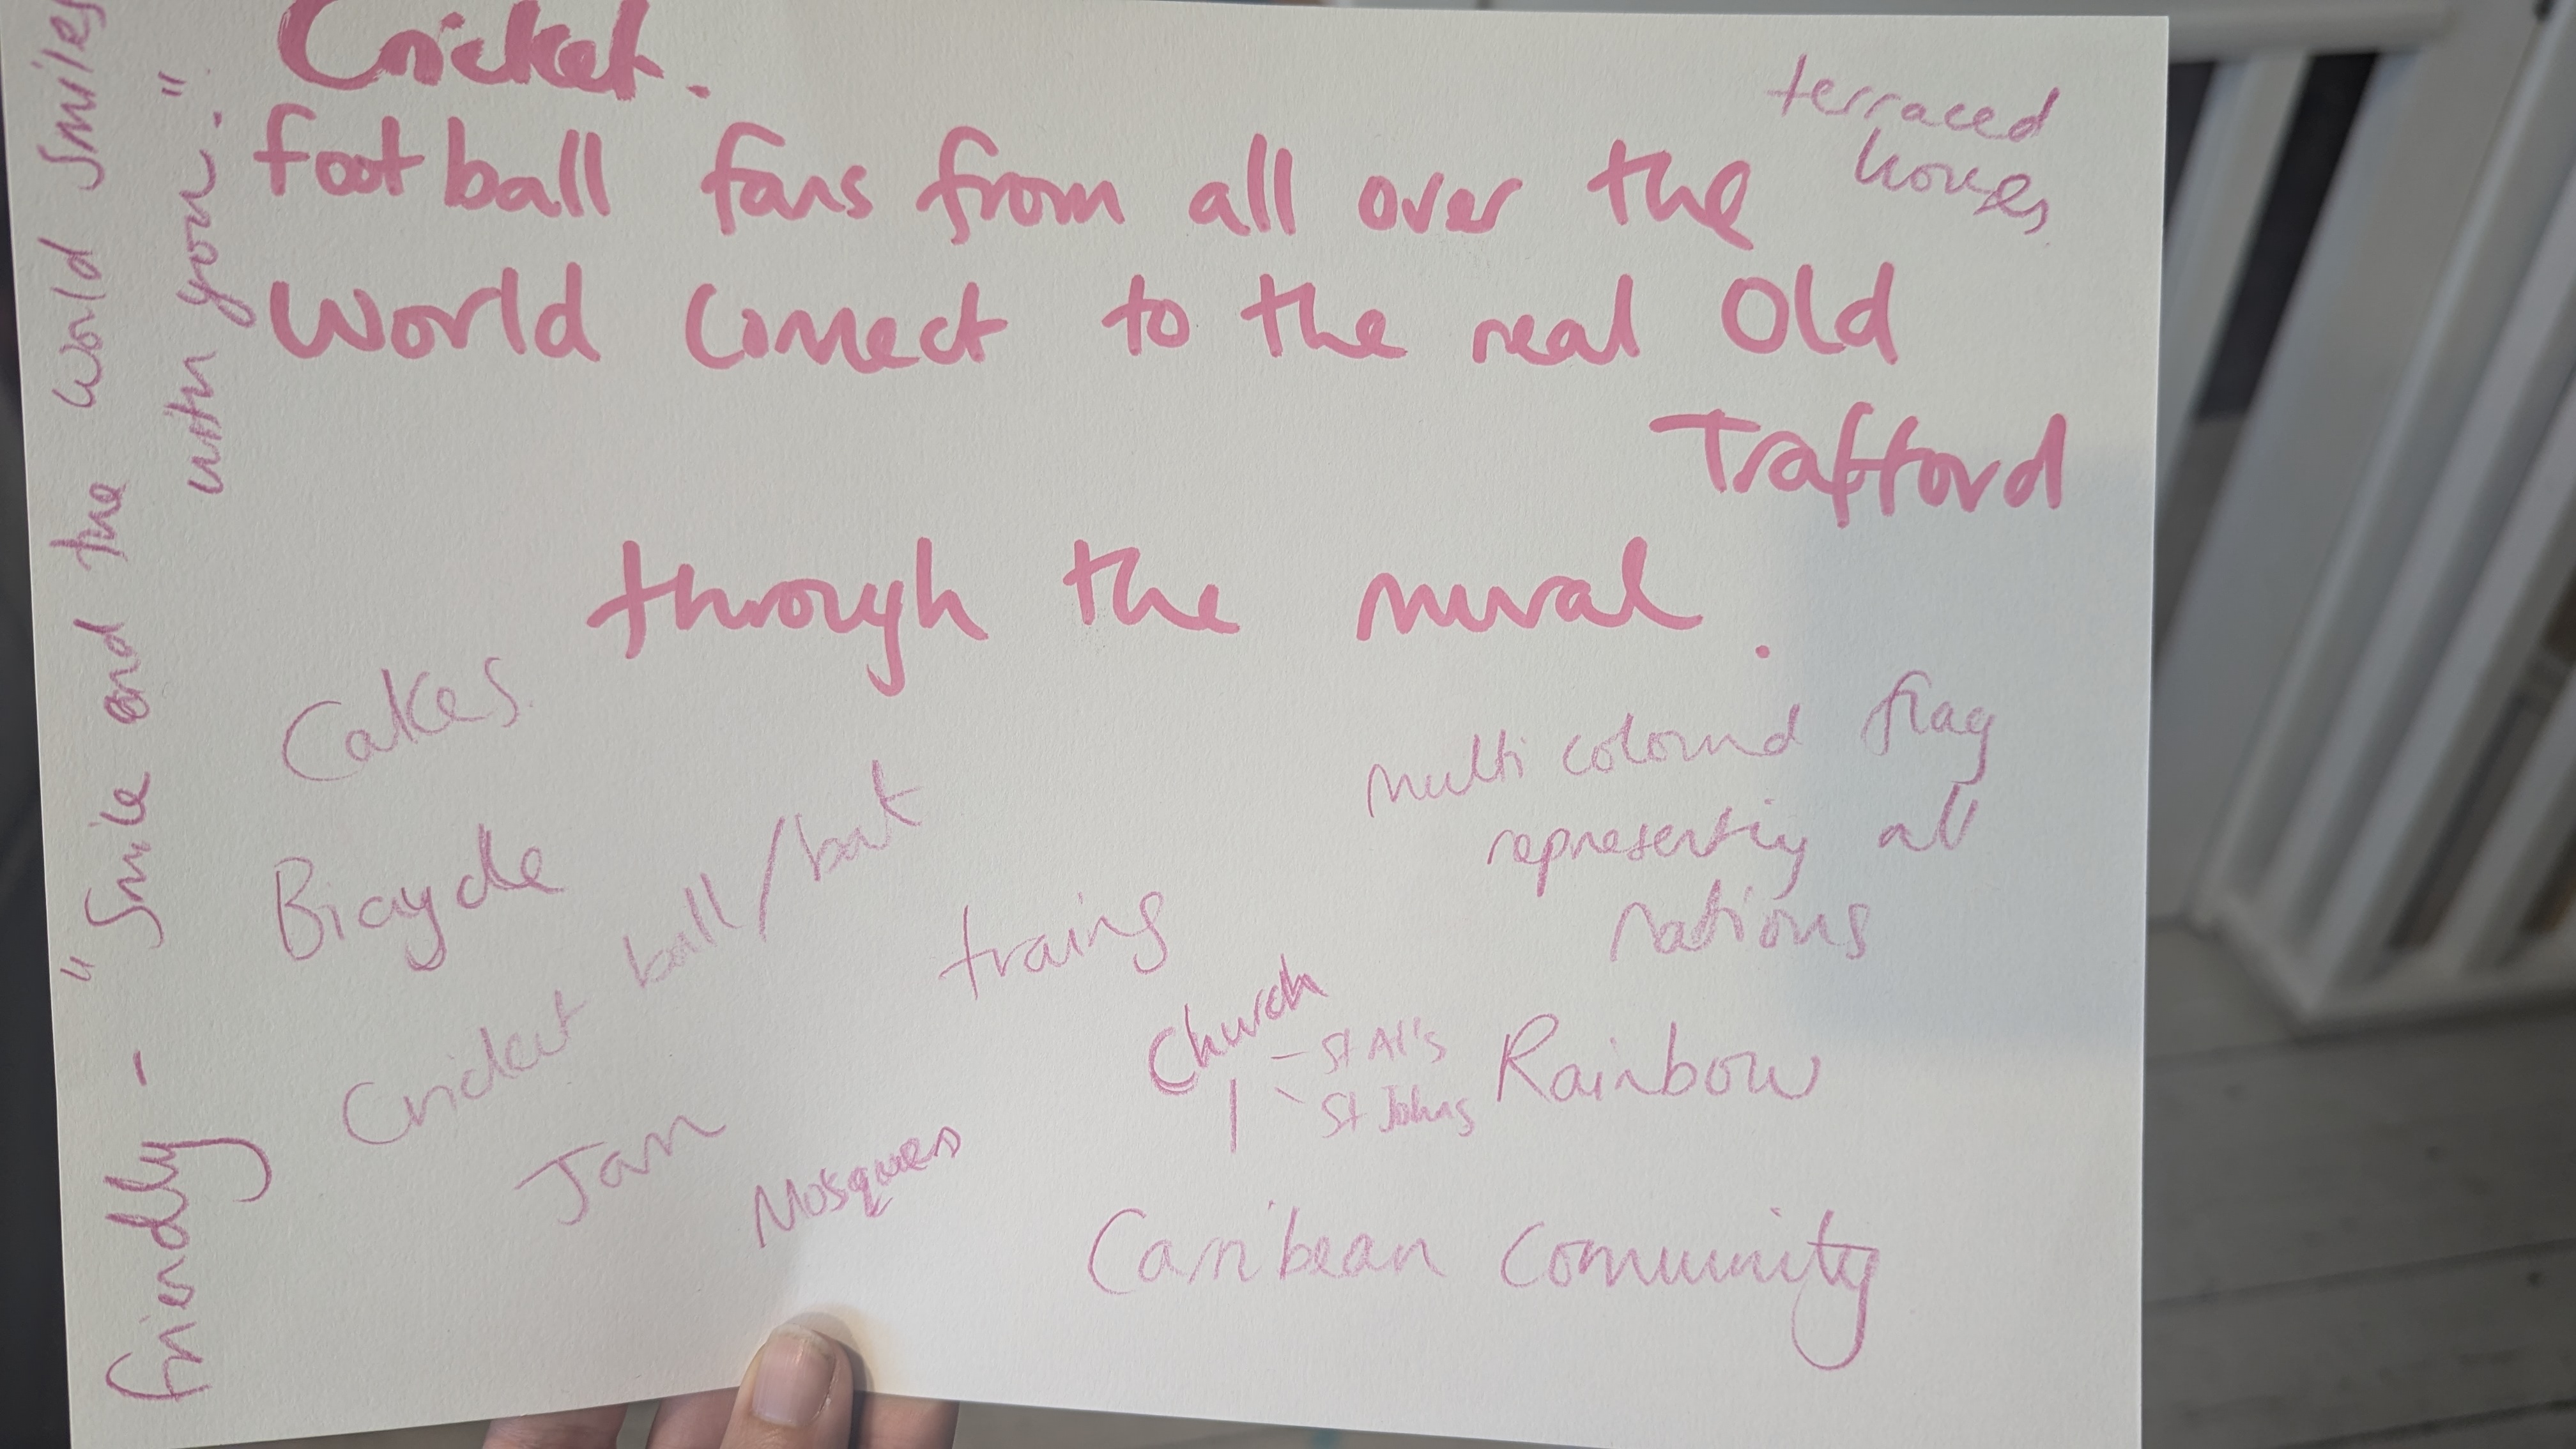 Cricket.
football fans from all over the
World Connect to the real Old
Trafford
through the mural.
terraced
houses
friendly - "Smile and the World Smiles
with you."
Cakes
Bicycle
Cricket ball/bat
Jam
Mosques
trains
Church
- St Al's
- St Johns
multi coloured flag
representing all
nations
Rainbow
Carribean Community